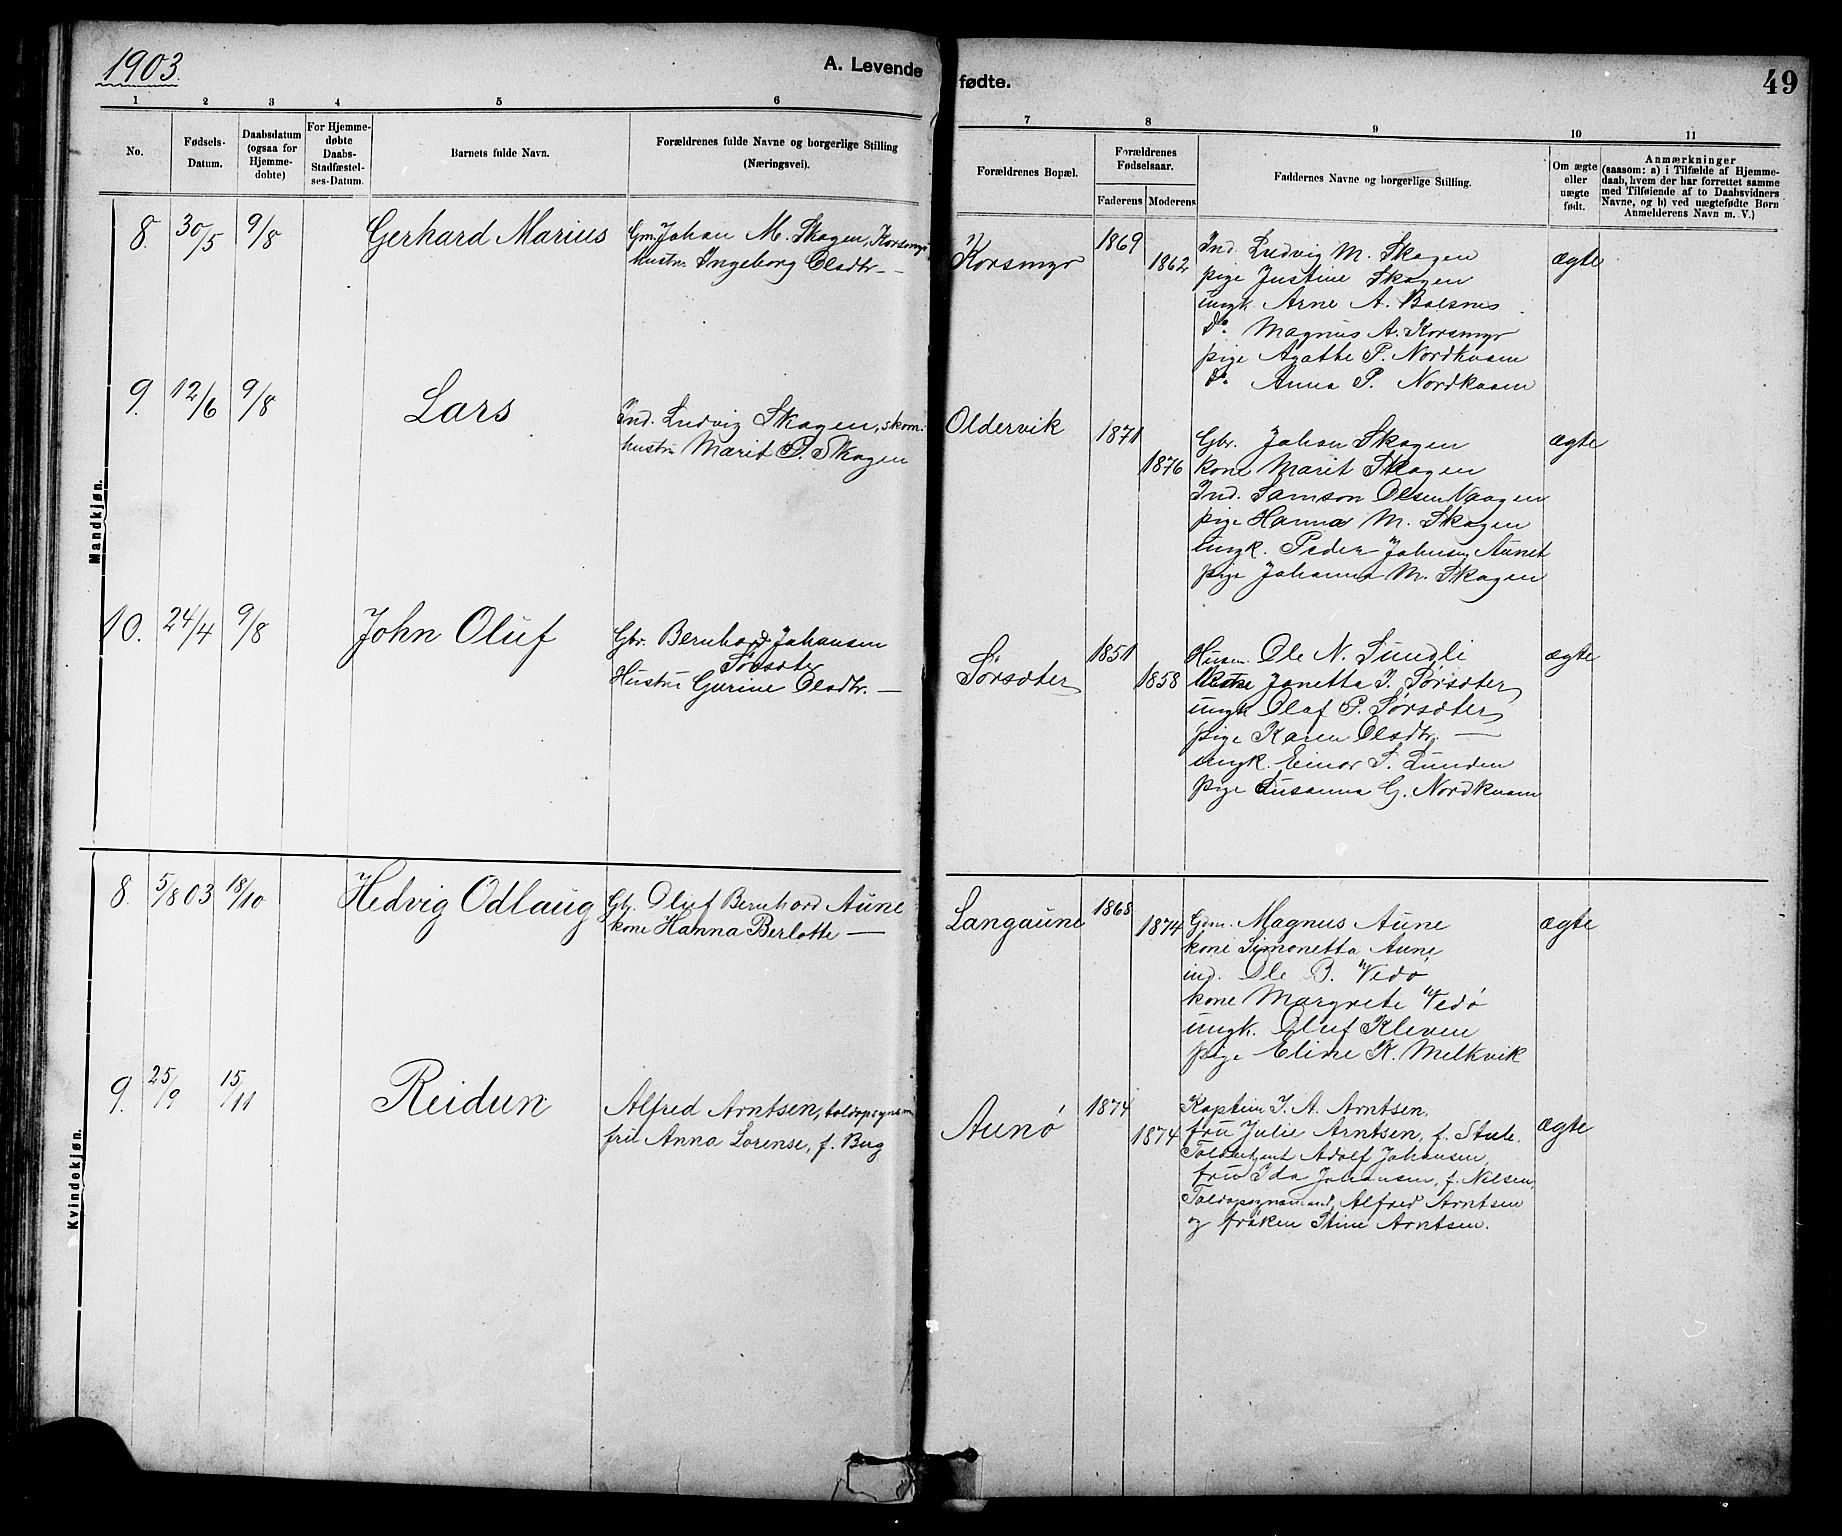 1903.
A. Levende
fødte.
49
1 2 3 4 5 6
7 8 9 10 11
No.
Fødsels-
Datum.
Daabsdatum
(ogsaa for
Hjemme-
døbte)
For Hjemme-
døbte
Daabs-
Stadfæstel-
ses-Datum.
Barnets fulde Navn.
Forældrenes fulde Navne og borgerlige Stilling
(Næringsvei).
Forældrenes Bopæl.
Forældrenes
Fødselsaar.
Faderens Moderens
Faddernes Navne og borgerlige Stilling.
Om ægte
eller
uægte
født.
Anmærkninger
(saasom: a) i Tilfælde af Hjemme-
daab, hvem der har forrettet samme
med Tilføiende af to Daabsvidners
Navne, og b) ved uægtefødte Børn
Anmelderens Navn m. V.)
Mandkjøn.
8. 30/5 9/8 Gerhard Marius
Gm. Johan M. Skagen, Korsmyr
hustru Ingeborg Olsdtr. —
Korsmyr 1869 1862
Ind. Ludvig M. Skagen
pige Justine Skagen
ungk. Arne A. Balsnes
Do. Magnus A. Korsmyr
pige Agathe P. Nordkvam
Do. Anna P. Nordkvam
ægte
9. 12/6 9/8 Lars
Ind. Ludvig Skagen, skom.
hustru Marit P. Skagen
Oldervik 1871 1876
Gbr. Johan Skagen
kone Marit Skagen
Ind. Samson Olsen Vaagen
pige Hanna M. Skagen
ungk. Peder Johnsen Aunet
pige Johanna M. Skagen
ægte
10. 24/4 9/8 John Oluf
Gbr. Bernhard Johansen
Sørsæter
Hustru Gurine Olsdtr. —
Sørsæter 1851 1858
Husm. Ole N. Sundli
kone Janetta J. Sørsæter
ungk Olaf P. Sørsæter
pige Karen Olsdtr. —
ungk. Einar S. Lunden
pige Susanna G. Nordkvam
ægte
Kvindekjøn.
8. 5/8 03 18/10 Hedvig Odlaug
Gbr. Oluf Bernhard Aune
kone Hanna Berlotte —
Langaune 1868 1874
Gdm. Magnus Aune
kone Simonetta Aune
ind. Ole B. Vedø
kone Margrete Vedø
ungk. Oluf Kleven
pige Eline K. Melkvik
ægte
9. 25/9 15/11 Reidun
Alfred Arntsen, toldopsynsm
fru Anna Lorense, f. Bug
Aunø 1874 1874
Kaptein J. A. Arntsen,
fru Julie Arntsen, f. Stub.
Toldbetjent Adolf Johansen,
fru Ida Johansen, f. Nilsen,
Toldopsynsmand Alfred Arntsen
og frøken Stine Arntsen.
ægte